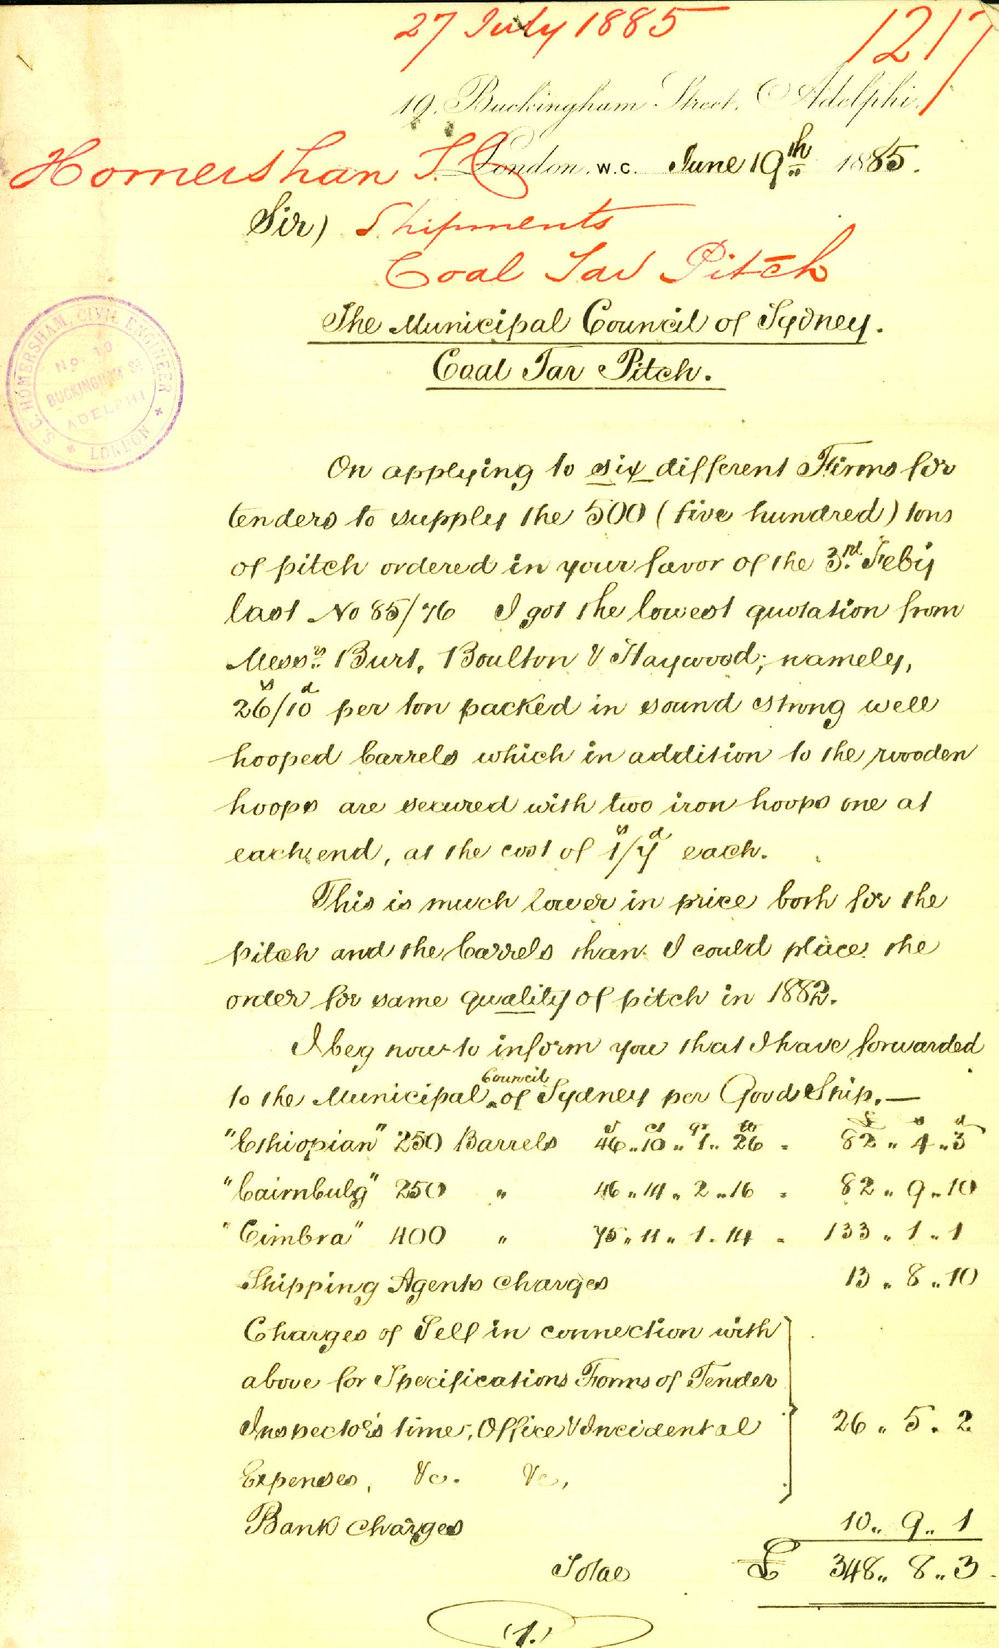 27 July 1885
1217
19, Buckingham Street, Adelphi,
London, W.C. June 19th 1885.
Homersham S.C.
Sir) Shipments
Coal Tar Pitch
The Municipal Council of Sydney.
Coal Tar Pitch.
S. C. HOMERSHAM, CIVIL ENGINEER
No. 19
BUCKINGHAM ST
ADELPHI
* LONDON *
On applying to six different Firms for
tenders to supply the 500 (five hundred) tons
of pitch ordered in your favor of the 3rd. Feby
last No 85/76 I got the lowest quotation from
Messrs. Burt, Boulton & Haywood; namely,
26s/10d per ton packed in sound strong well
hooped barrels which in addition to the wooden
hoops are secured with two iron hoops one at
each end, at the cost of 1s/7d each.
This is much lower in price both for the
pitch and the barrels than I could place the
order for same quality of pitch in 1882.
I beg now to inform you that I have forwarded
to the Municipal Council of Sydney per Good Ship. —
t c qr lb £ s d
"Ethiopian" 250 Barrels 46 .. 10 .. 1 .. 26 - 82 .. 4 .. 3
"Cairnbulg" 250 " 46 .. 14 .. 2 .. 16 - 82 .. 9 .. 10
"Cimbra" 400 " 75 .. 11 .. 1 . 14 - 133 .. 1 .. 1
Shipping Agents charges 13 .. 8 .. 10
Charges of Self in connection with
above for Specifications Forms of Tender
Inspector's time, Office & Incidental 26 .. 5 . 2
Expenses, &c. &c,
Bank charges 10 .. 9 .. 1
Total £ 348 .. 8 .. 3
(1.)